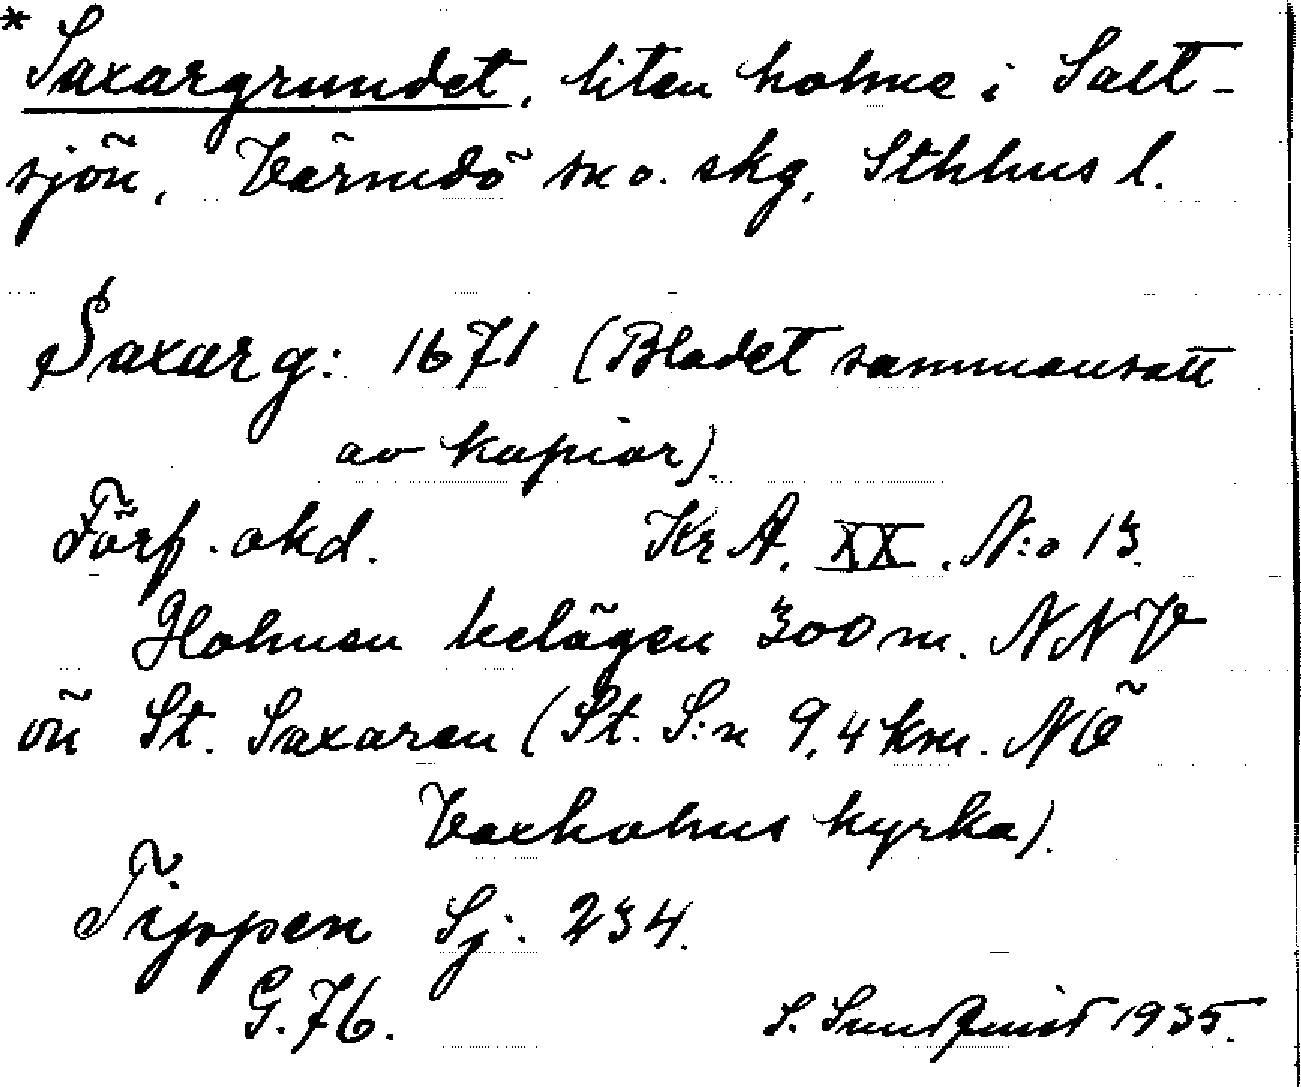 *Saxargrundet, liten holme i Salt-
sjön, Värmdö sn o. skg, Sthlms l.
Saxarg: 1671 (Bladet sammansatt
av kopior).
Förf. okd. Kr A. XX. N:o 13.
Holmen belägen 300 m. NNV
ön St. Saxaren (St. S:n 9,4 km. NÖ
Vaxholms kyrka).
Tippen Sj. 234.
G. 76. S. Sundquist 1935.